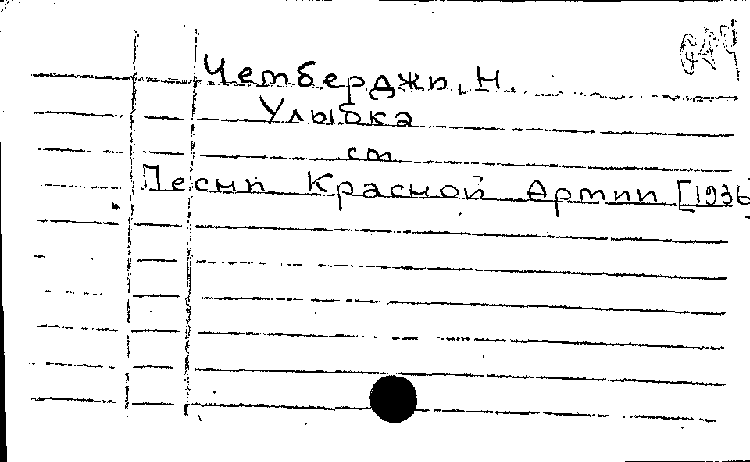 Чемберджи, Н.
Улыбка
сп.
Песни Красной Армии [1936